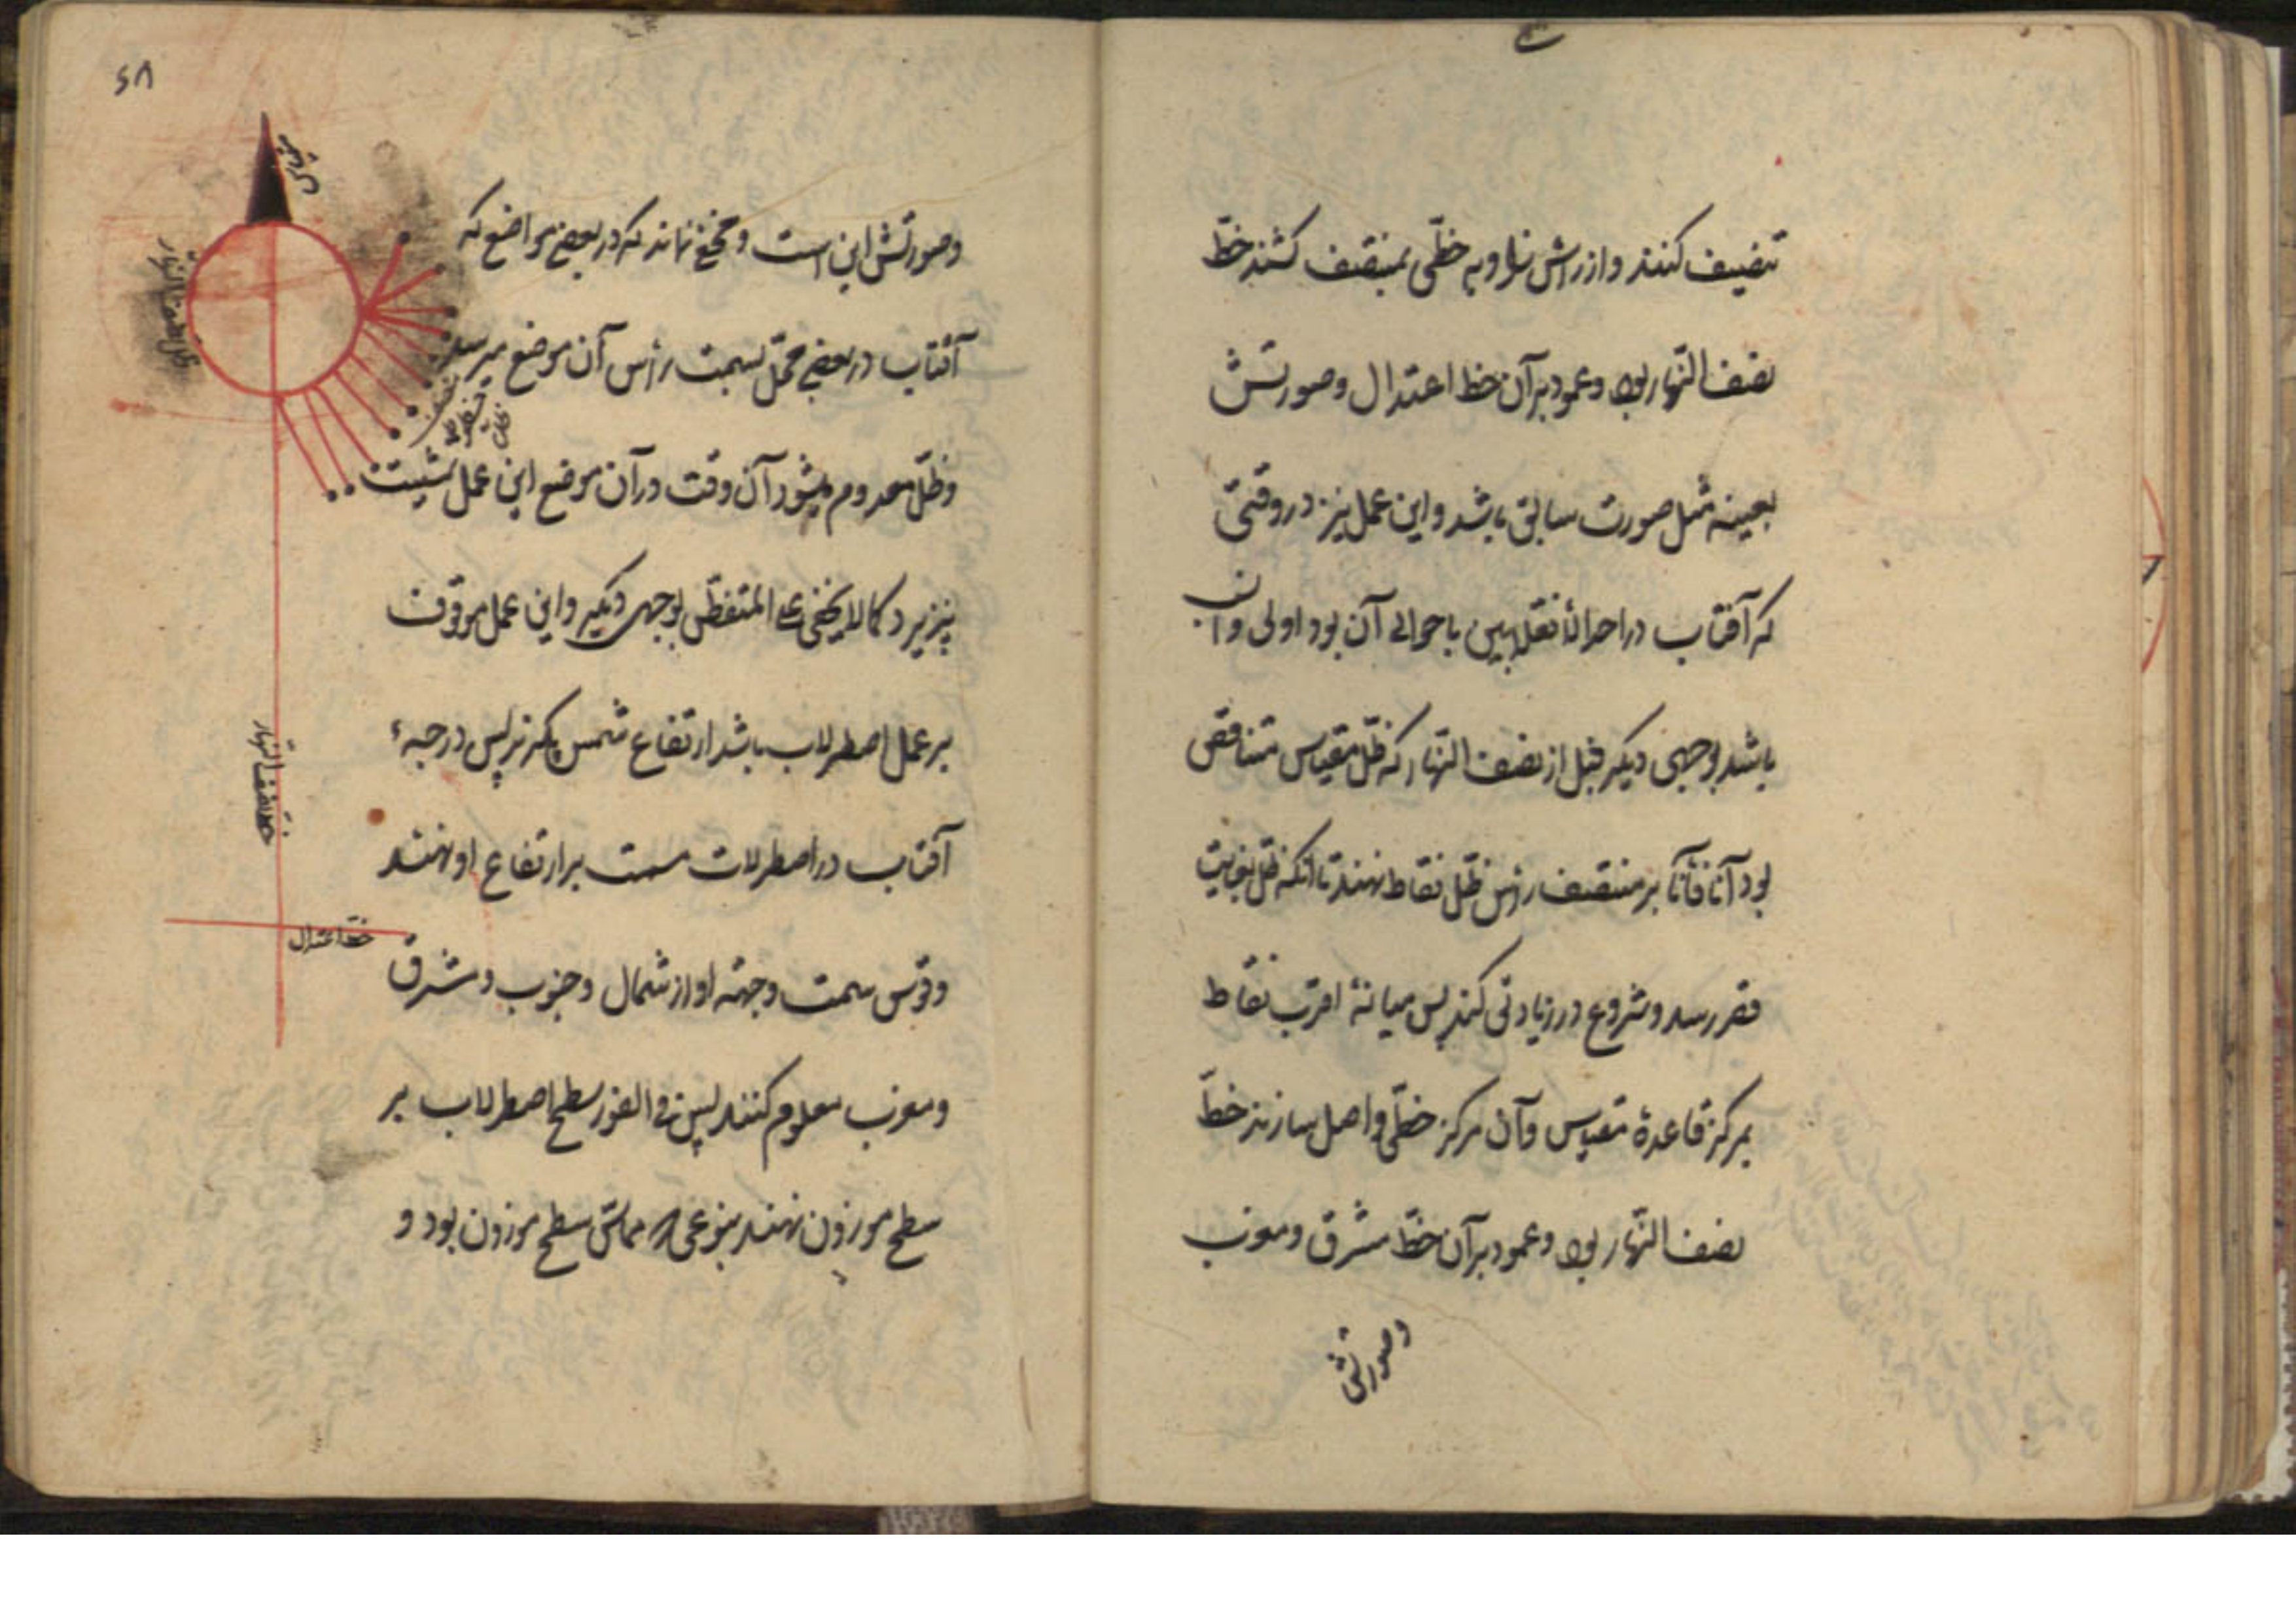 تنصیف کنند و از رأس زاویه خطی بمنتصف کشند خطّ
نصف النّهار بود و عمود بر آن خط اعتدال و صورتش
بعینه مثل صورت سابق باشد و این عمل نیز در وقتی
که آفتاب در احد الانقلابین یا حوالی آن بود اولی و انسب
باشد بوجهی دیگر قبل از نصف النّهار که ظلّ مقیاس متناقص
بود آناً فآناً بر منتصف رأس ظلّ نقاط نهند تا آنکه ظلّ بغایت
قصر رسد و شروع در زیادتی کند پس میانهٔ اقرب نقاط
بمرکز قاعدهٔ مقیاس و آن مرکز خطّی واصل سازند خطّ
نصف النّهار بود و عمود بر آن خطّ مشرق و مغرب
وصورتش
۶۸
مقیاس
وصورتش این است و مخفی نماند که در بعضی مواضع که
آفتاب در بعضی محلّ بسمت رأس آن موضع میرسد
و ظلّ معدوم میشود آن وقت در آن موضع این عمل تمشیت
نپذیرد کما لا یخفی علی المتفطّن بوجهی دیگر و این عمل موقوف
بر عمل اصطرلاب باشد ارتفاع شمس بگیرند پس درجهٔ
آفتاب در اصطرلاب سمت بر ارتفاع او نهند
و قوس سمت و جهة او از شمال و جنوب و مشرق
و مغرب معلوم کنند پس فی الفور سطح اصطرلاب بر
سطح موزون نهند بنوعی که مماسّ سطح موزون بود و
خط نصف النهار
خط اعتدال